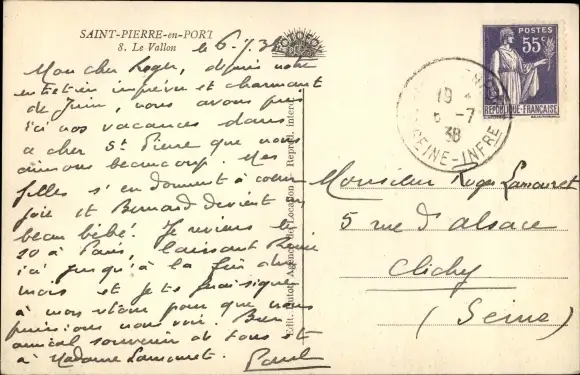 SAINT-PIERRE-en-PORT
8. Le Vallon
le 6.7.38
Mon cher Roger, depuis notre
entretien imprévu et charmant
de Juin, nous avons pris
ici nos vacances dans
ce cher St Pierre que nous
aimons beaucoup. Mes
filles s'en donnent à coeur
joie et Bernard devient un
beau bébé. Je reviens le
20 à Paris, laissant
ici jusqu'à la fin du
mois et je te
à mon retour pour que nous
puissions nous voir. Bien
amical souvenir de tous et
à Madame Lamouret. Paul
FOTOFOLI
Edit. Autot, Agence de Location Reprod. Interd.
POSTES
55c
REPUBLIQUE-FRANÇAISE
19
6 -7
38
SEINE-INFRE
Monsieur Roger Lamouret
5 rue d'alsace
Clichy
(Seine)